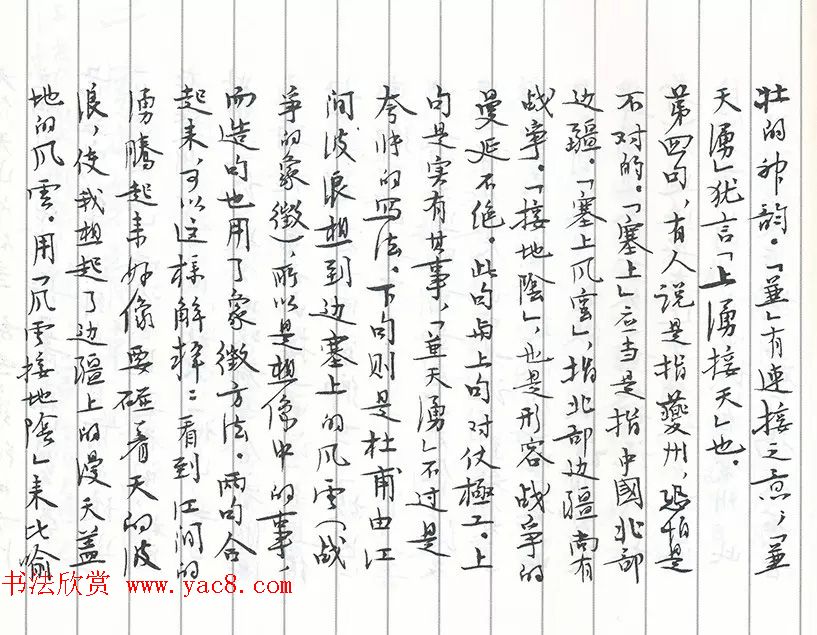 壮的神韵。「兼」有連接之意，「兼
天湧」犹言「上湧接天」也。
第四句，有人说是指夔州，恐怕是
不对的。「塞上」应当是指中國北部
边疆。「塞上风雲」，指北部边疆尚有
战争。「接地陰」，也是形容战争的
曼延不绝。此句与上句对仗極工。上
句是实有其事，「兼天湧」不过是
夸张的写法。下句则是杜甫由江
间波浪想到边塞上的风雲（战
争的象徵），所以是想像中的事，
而造句也用了象徵方法。两句合
起来，可以这样解释：看到江间的
湧騰起来好像要碰着天的波
浪，使我想起了边疆上的漫天盖
地的风雲。用「风雲接地陰」来比喻
书法欣赏 www.yac8.com